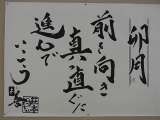 卯月
前を向き
真っ直ぐに
進んで
いこう